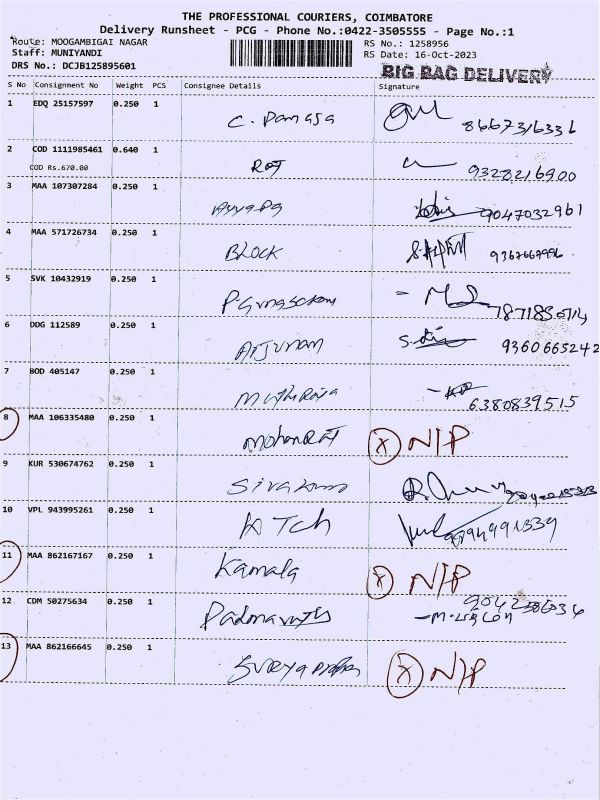 THE PROFESSIONAL COURIERS, COIMBATORE
Delivery Runsheet - PCG - Phone No.:0422-3505555 - Page No.:1
Route: MOOGAMBIGAI NAGAR RS No.: 1258956
Staff: MUNIYANDI RS Date: 16-Oct-2023
DRS No.: DCJB125895601 BIG BAG DELIVERY
S No Consignment No Weight PCS Consignee Details Signature
1 EDQ 25157597 0.250 1 8667316336
2 COD 1111985461 0.640 1 Raj 9328216900
COD Rs.670.00
3 MAA 107307284 0.250 1 9047032961
4 MAA 571726734 0.250 1 BLOCK
5 SVK 10432919 0.250 1
6 DDG 112589 0.250 1 Arjunam 9360665242
7 BOD 405147 0.250 1 6380839515
8 MAA 106335480 0.250 1 MohanRaj X N/P
9 KUR 530674762 0.250 1
10 VPL 943995261 0.250 1
11 MAA 862167167 0.250 1 Kamala X N/P
12 CDM 50275634 0.250 1
13 MAA 862166645 0.250 1 X N/P